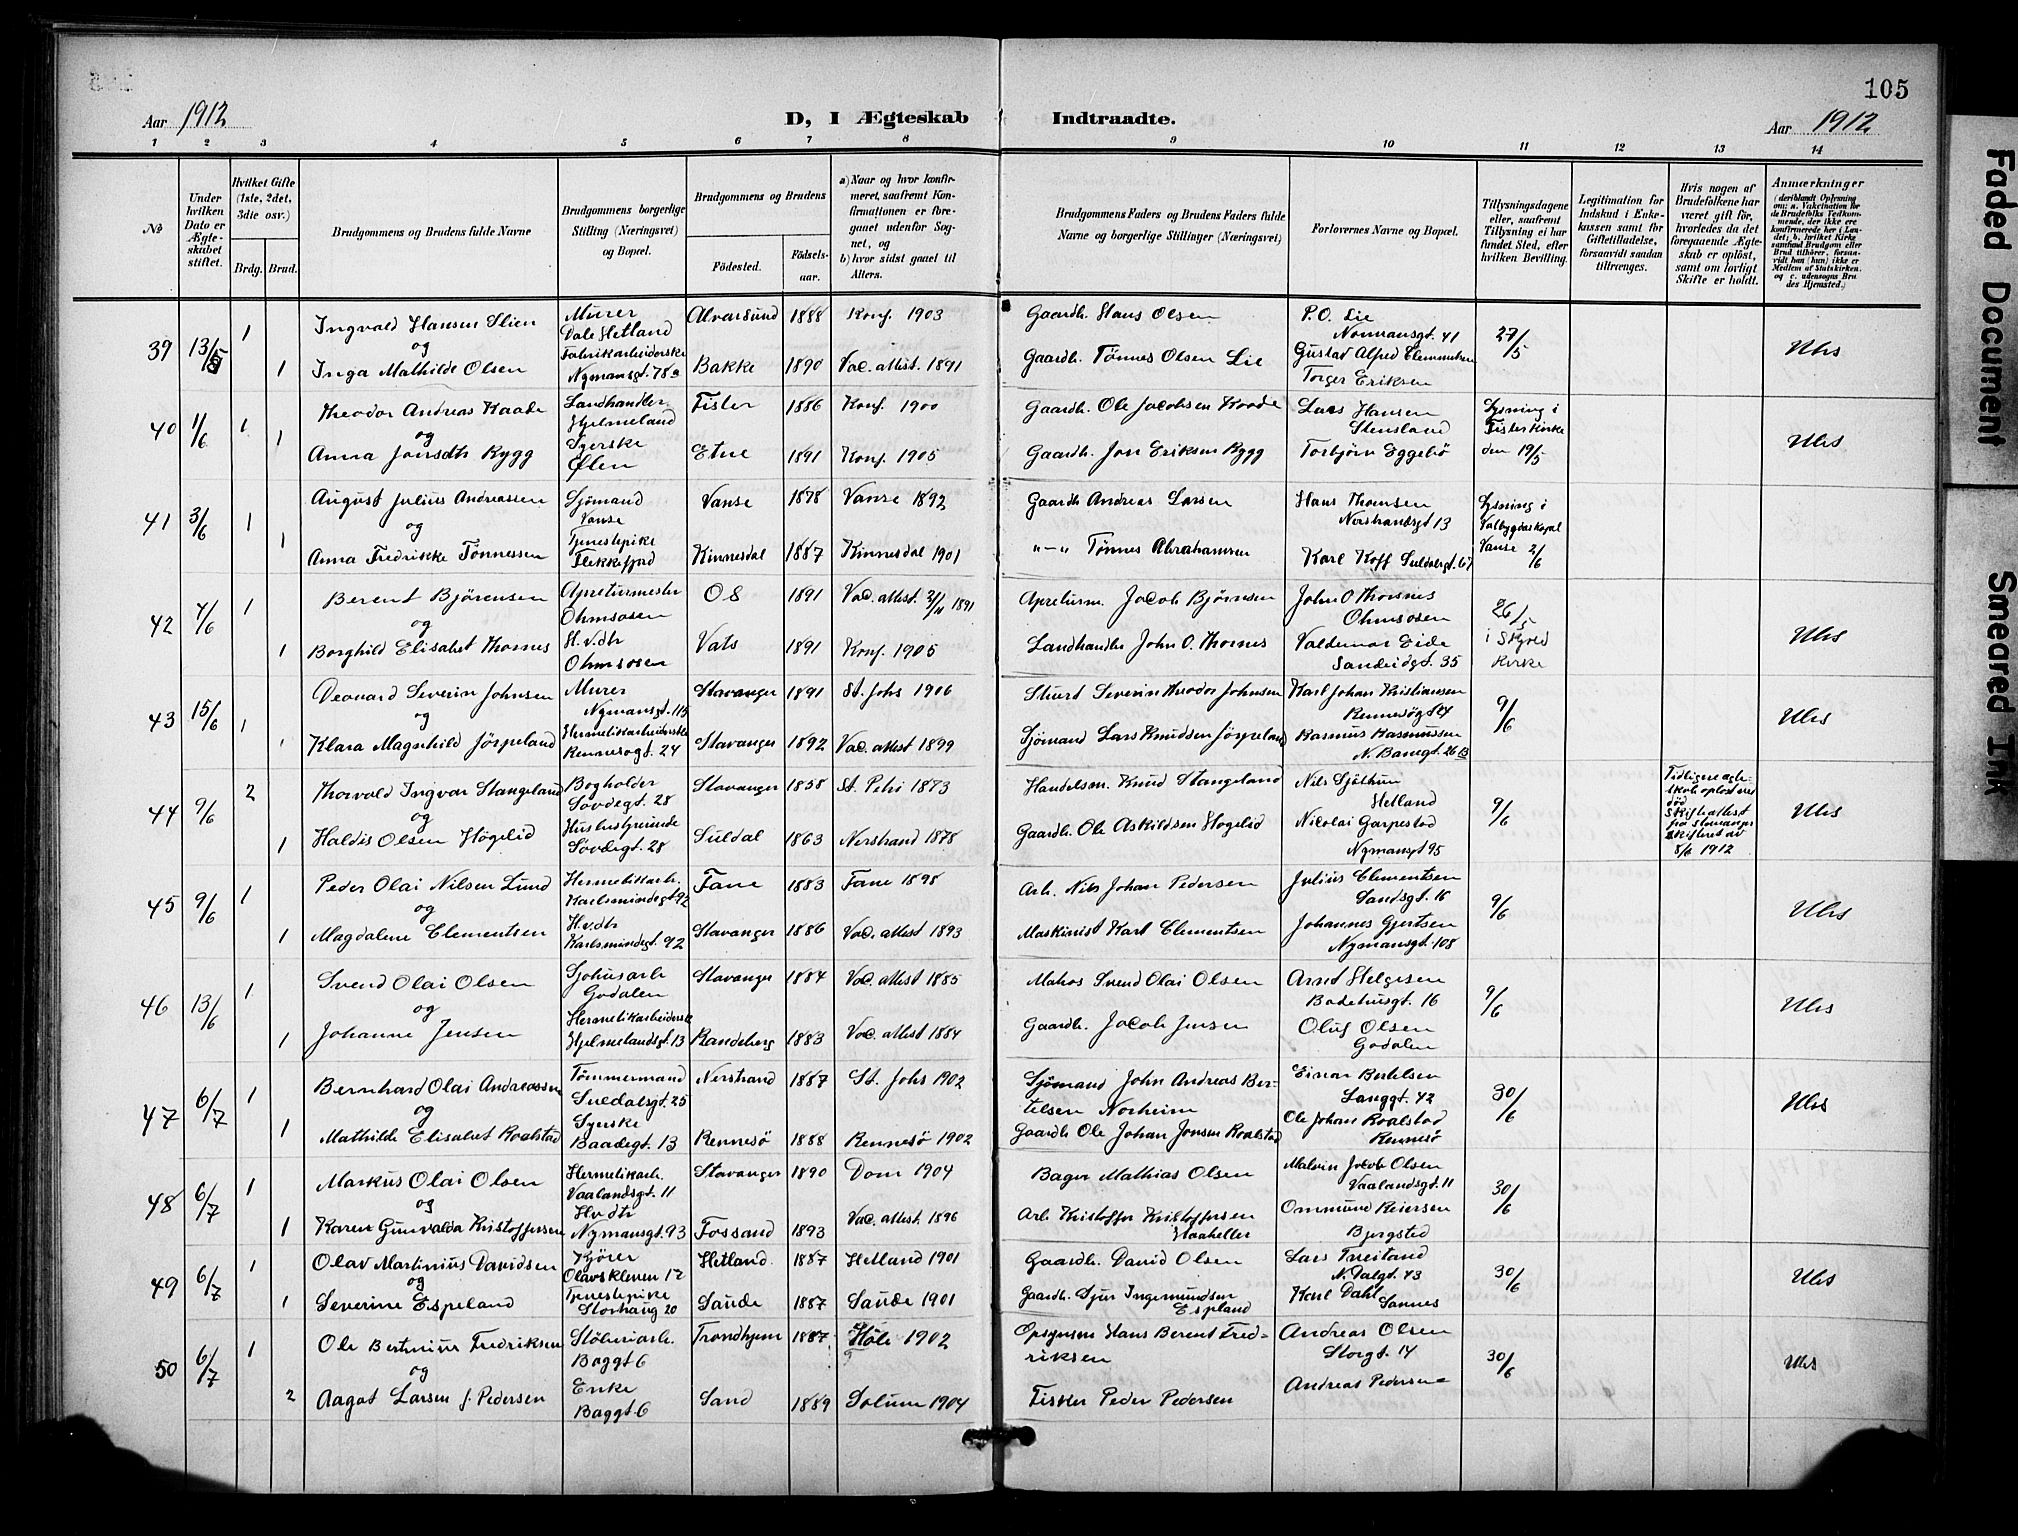 105
Aar 1912
D, I Ægteskab Indtraadte.
Aar 1912
1 2 3 4 5 6 7 8 9 10 11 12 13 14
No
Under hvilken Dato er Ægteskabet stiftet.
Hvilket Gifte (1ste, 2det, 3die osv.)
Brdg. Brud.
Brudgommens og Brudens fulde Navne
Brudgommens borgerlige Stilling (Næringsvei) og Bopæl.
Brudgommens og Brudens
Fødested.
Fødselsaar.
a) Naar og hvor konfirmeret, saafremt Konfirmationen er foregaaet udenfor Sognet, og
b) hvor sidst gaaet til Alters.
Brudgommens Faders og Brudens Faders fulde Navne og borgerlige Stillinger (Næringsvei)
Forlovernes Navne og Bopæl.
Tillysningsdagene eller, saafremt Tillysning ei har fundet Sted, efter hvilken Bevilling.
Legitimation for Indskud i Enkekassen samt for Giftetilladelse, forsaavidt saadan tiltrænges.
Hvis nogen af Brudefolkene har været gift før, hvorledes da det foregaaende Ægteskab er opløst, samt om lovligt Skifte er holdt.
Anmærkninger (deriblandt Oplysning om: a. Vakcination for de Brudefolks Vedkommende, der ikke ere konfirmerede her i Landet; b. hvilket Kirkesamfund Brudgom eller Brud tilhører, forsaavidt han (hun) ikke er Medlem af Statskirken. og c. udensogns Brudes Hjemsted.)
39 13/5 1 Ingvald Hansen Slien Murer Dale Hetland Alversund 1888 Konf. 1903 Gaardb. Hans Olsen P.O. Lie Normansgt. 41 27/5
og
1 Inga Mathilde Olsen Fabrikarbeiderske Nymansgt. 78a Bakke 1890 Vac. attest. 1891 Gaardb. Tønnes Olsen Lie Gustav Alfred Clemmetsen Torger Eriksen
40 1/6 1 Theodor Andreas Kaade Landhandler Hjelmeland Fister 1886 Konf. 1900 Gaardb. Ole Jacobsen Kaade Lars Hansen Stensland Lysning i Fisterkirke den 19/5
og
1 Anna Jonsdtr Rygg Syerske Ølen Etne 1891 Konf. 1905 Gaardb. Jon Eriksen Rygg Torbjørn Eggebø
41 3/6 1 August Julius Andreassen Sjømand Vanse Vanse 1878 Vanse 1892 Gaardb Andreas Larsen Hans Thomsen Nerstrandsgt 13 Lysning i Vanse 2/6
og
1 Anna Fredrikke Tønnessen Tjenestepike Flekkefjord Kinnesdal 1887 Kinnesdal 1901 "—" Tønnes Abrahamsen Karl Koff Suldalsgt. 67
42 7/6 1 Berent Bjørensen Apreturmester Ohmsosen Os 1891 Vac. attest. 2/11 1891 Apreturm. Jacob Bjørnsen John O Thornes Ohmsosen 26/5 i Skjold Kirke
og
1 Borghild Elisabet Thornes H.v.dtr Ohmsosen Vats 1891 Konf. 1905 Landhandler John O. Thornes Valdemar Eide Sandeidgt. 35
43 15/6 1 Deonard Severin Johnsen Murer Nymansgt. 115 Stavanger 1891 St. Johs 1906 Stuert Severin Theodor Johnsen Karl Johan Kristiansen 9/6
og
1 Klara Magnhild Jørpeland Hermetikarbeiderske Rennesøgt. 24 Stavanger 1892 Vac. attest 1899 Sjømand Lars Knudsen Jørpeland Rasmus Rasmussen N. Banegt. 26 B
44 9/6 2 Thorvald Ingvar Stangeland Bogholder Sovdegt. 28 Stavanger 1858 St. Petri 1873 Handelsm. Knud Stangeland Nils Sjøthun Hetland 9/6
og
1 Haldis Olsen Høgelid Husbestyrerinde Sovdegt. 28 Suldal 1863 Nerstrand 1878 Gaardb. Ole Askildsen Høgelid Nicolai Garpestad Nymansgt 95
45 9/6 1 Peder Olai Nilsen Lund Hermetikarb. Karlsmindegt 92 Fane 1883 Fane 1898 Arb. Nils Johan Pedersen Julius Clementsen Sandsgt. 16 9/6
og
1 Magdalene Clementsen H.v.dtr Karlsmindegt. 92 Stavanger 1886 Vac. attest 1893 Maskinist Karl Clementsen Johannes Gjertsen Nymansgt. 108
46 13/6 1 Svend Olai Olsen Sjøhusarb Godalen Stavanger 1884 Vac. attest 1885 Matros Svend Olai Olsen Arnt Helgesen Badehusgt. 16 9/6
og
1 Johanne Jensen Hermetikarbeiderske Hjelmelandsgt. 13 Randeberg 1883 Vac. attest 1884 Gaardb. Jacob Jensen Oluf Olsen Godalen
47 6/7 1 Bernhard Olai Andreassen Tømmermand Suldalsgt. 25 Nerstrand 1887 St. Johs 1902 Sjømand John Andreas Bertelsen Norheim Einar Bertelsen Langgt. 42 30/6
og
1 Mathilde Elisabet Roalstad Syerske Baadegt. 13 Rennesø 1888 Rennesø 1902 Gaardb Ole Johan Jonsen Roalstad Ole Johan Roalstad Rennesø
48 6/7 1 Markus Olai Olsen Hermetikarb. Vaalandsgt. 11 Stavanger 1890 Dom 1904 Bager Mathias Olsen Malvin Jacob Olsen Vaalandsgt. 11 30/6
og
1 Karen Gunvalda Kristoffersen Hvdtr Nymansgt. 93 Fossand 1893 Vac. attest. 1896 Arb Kristoffer Kristoffersen Haaheller Ommund Reiersen Bjergsted
49 6/7 1 Olav Martinius Davidsen Kjører Olavskleven 12 Hetland. 1887 Hetland 1901 Gaardb. David Olsen Lars Treitand N. Dalgt. 43 30/6
og
1 Severine Espeland Tjenestepike Storhaug 20 Saude 1887 Saude 1901 Gaardb. Sjur Ingemundsen Espland Karl Dahl Sannes
50 6/7 1 Ole Bertinius Fredriksen Støberiarb. Baggt 6 Trondhjem 1887 Høle 1902 Opsynsm Hans Berent Fredriksen Andreas Olsen Storgt. 14 30/6
og
2 Aagot Larsen f. Pedersen Enke Baggt. 6 Sand 1889 Solum 1904 Fisker Peder Pedersen Andreas Pedersen
Faded Document
Smeared Ink